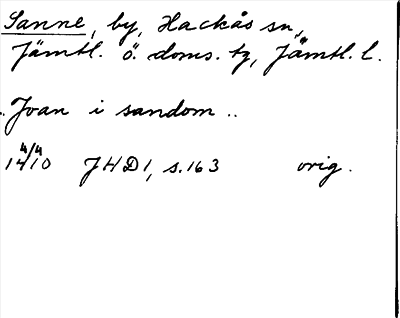 Sanne, by, Hackås sn,
Jämtl. ö. doms. tg, Jämtl. l.
.. Joan i sandom ..
4/4
1410 JHD1, s.163 orig.